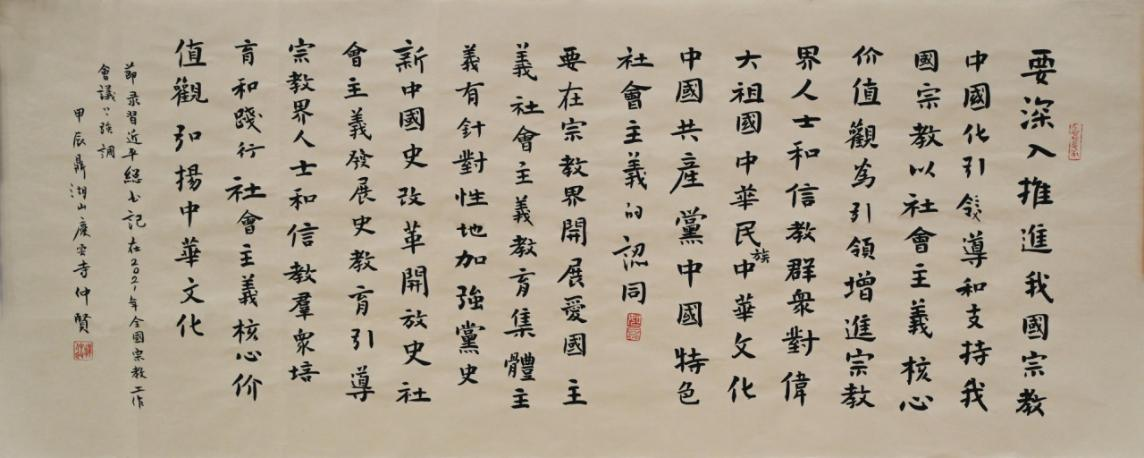 要深入推進我國宗教
中國化引領導和支持我
國宗教以社會主義核心
价值觀爲引領增進宗教
界人士和信教群衆對偉
大祖國中華民族中華文化
中國共產黨中國特色
社會主義的認同
要在宗教界開展愛國主
義社會主義教育集體主
義有針對性地加強黨史
新中國史改革開放史社
會主義發展史教育引導
宗教界人士和信教羣衆培
育和踐行社會主義核心价
值觀弘揚中華文化
節录習近平總书記在2021年全國宗教工作
會議上強調
甲辰鼎湖山慶雲寺仲賢